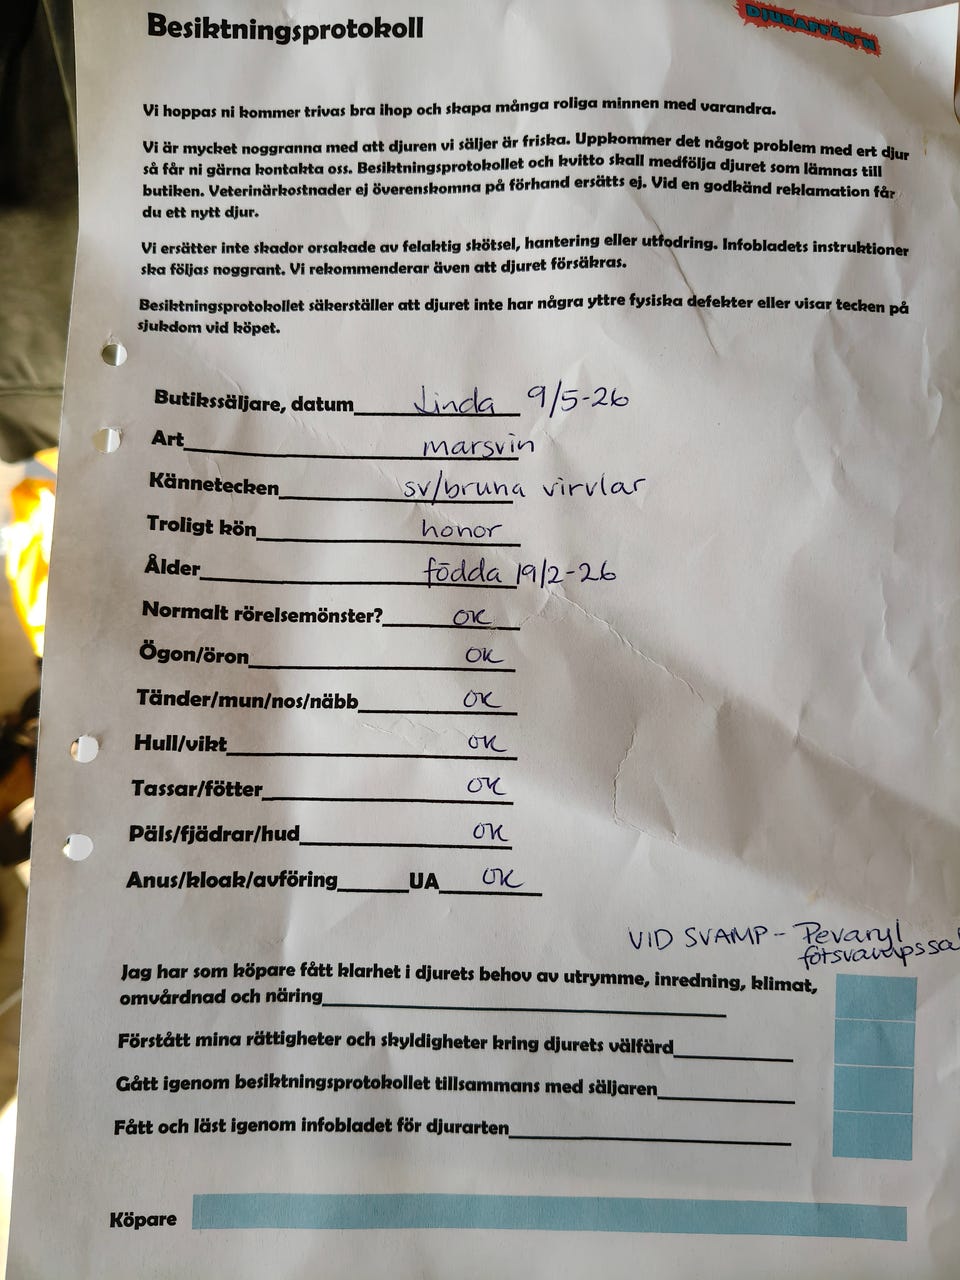 Besiktningsprotokoll
DJURAFFÄR'N
Vi hoppas ni kommer trivas bra ihop och skapa många roliga minnen med varandra.
Vi är mycket noggranna med att djuren vi säljer är friska. Uppkommer det något problem med ert djur
så får ni gärna kontakta oss. Besiktningsprotokollet och kvitto skall medfölja djuret som lämnas till
butiken. Veterinärkostnader ej överenskomna på förhand ersätts ej. Vid en godkänd reklamation får
du ett nytt djur.
Vi ersätter inte skador orsakade av felaktig skötsel, hantering eller utfodring. Infobladets instruktioner
ska följas noggrant. Vi rekommenderar även att djuret försäkras.
Besiktningsprotokollet säkerställer att djuret inte har några yttre fysiska defekter eller visar tecken på
sjukdom vid köpet.
Butikssäljare, datum Linda 9/5-26
Art marsvin
Kännetecken sv/bruna virvlar
Troligt kön honor
Ålder födda 19/2-26
Normalt rörelsemönster? OK
Ögon/öron OK
Tänder/mun/nos/näbb OK
Hull/vikt OK
Tassar/fötter OK
Päls/fjädrar/hud OK
Anus/kloak/avföring UA OK
VID SVAMP - Pevaryl
fotsvampssa
Jag har som köpare fått klarhet i djurets behov av utrymme, inredning, klimat,
omvårdnad och näring
Förstått mina rättigheter och skyldigheter kring djurets välfärd
Gått igenom besiktningsprotokollet tillsammans med säljaren
Fått och läst igenom infobladet för djurarten
Köpare